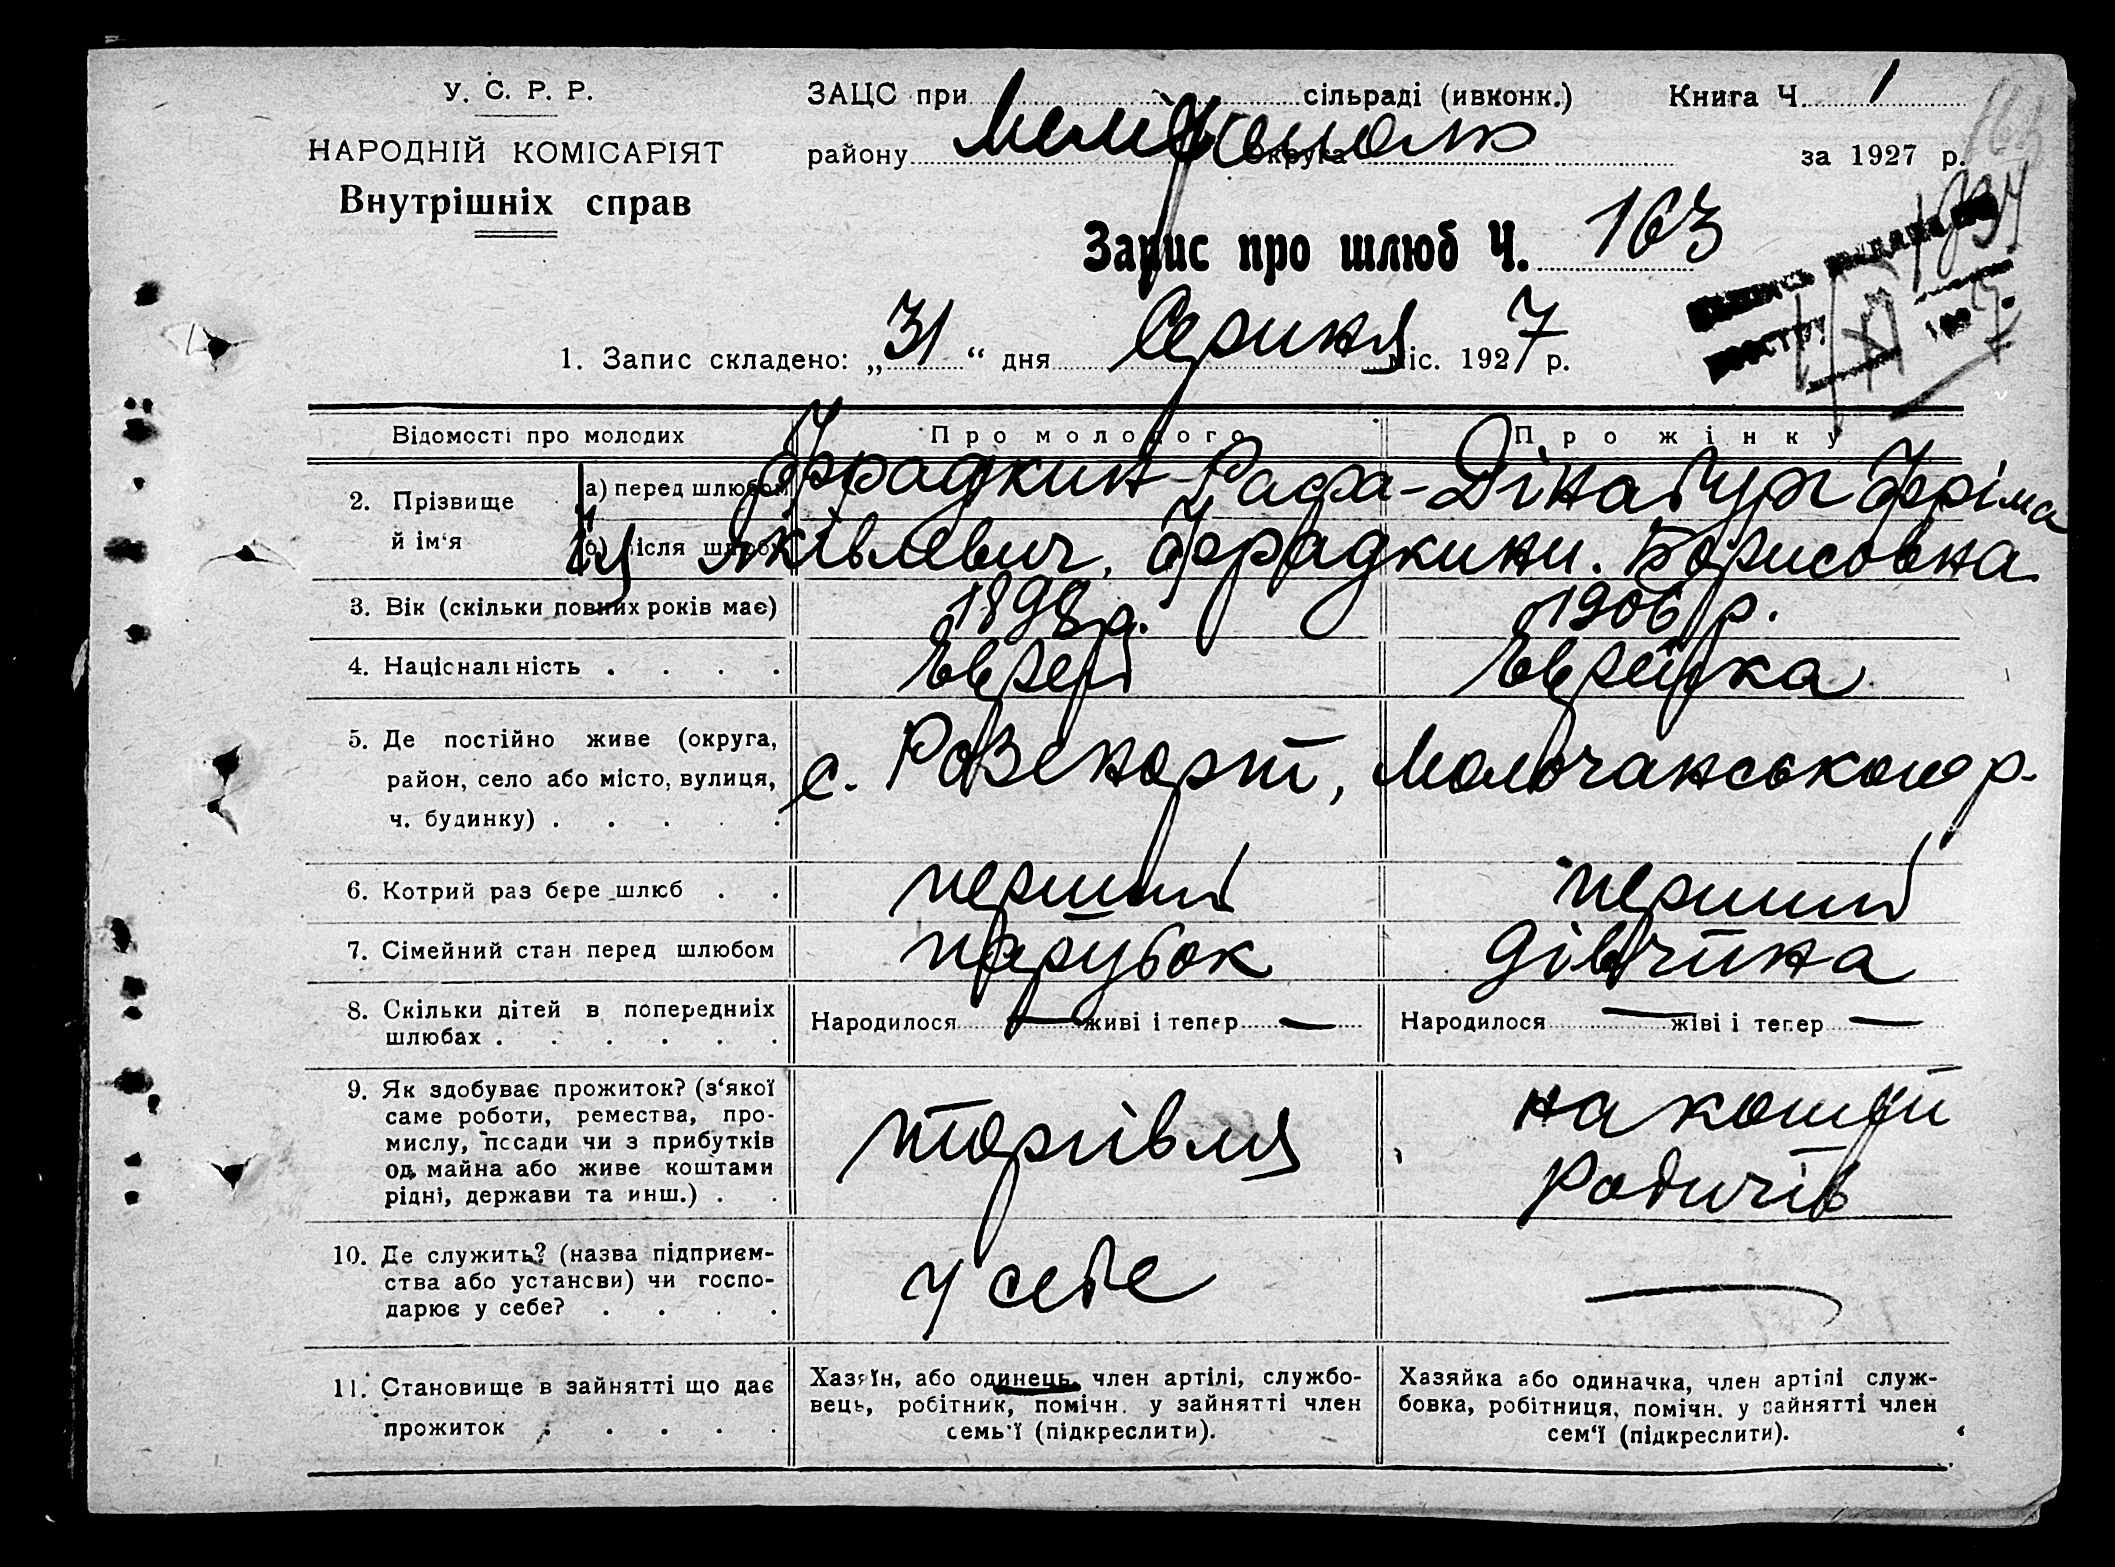 У. С. Р. Р.
НАРОДНІЙ КОМІСАРІЯТ
Внутрішніх справ
ЗАЦС при сільраді (ивконк.)
району Мелітополь округа
Книга Ч. 1
за 1927 р.
163
Запис про шлюб Ч. 163
1. Запис складено: „31“ дня Серпня міс. 1927 р.
Відомості про молодих
Про молодого
Про жінку
2. Прізвище й ім‘я
а) перед шлюбом
б) після шлюбу
Фрадкин Рафа- Дінабург Фріма
їл Яківлевич, Фрадкини. Борисовна
3. Вік (скільки повних років має)
1898 р.
1906 р.
4. Національність . . . .
Єврей
Єврейка
5. Де постійно живе (округа,
район, село або місто, вулиця,
ч. будинку) . . . . .
с. Розенорт, Молочанського р.
6. Котрий раз бере шлюб . .
перший
перший
7. Сімейний стан перед шлюбом
парубок
дівчина
8. Скільки дітей в попередніх
шлюбах . . . . . .
Народилося — живі і тепер —
Народилося — живі і тепер —
9. Як здобуває прожиток? (з‘якої
саме роботи, ремества, про-
мислу, пссади чи з прибутків
од майна або живе коштами
рідні, держави та инш.) . .
торгівля
на кошти
родичів
10. Де служить? (назва підприєм-
ства або устансви) чи госпо-
дарює у себе? . . . .
у себе
—
11. Становище в зайнятті що дає
прожиток . . . . .
Хазяїн, або одинець, член артілі, службо-
вець, робітник, помічн. у зайнятті член
семь‘ї (підкреслити).
Хазяйка або одиначка, член артілі служ-
бовка, робітниця, помічн. у зайнятті член
сем‘ї (підкреслити).